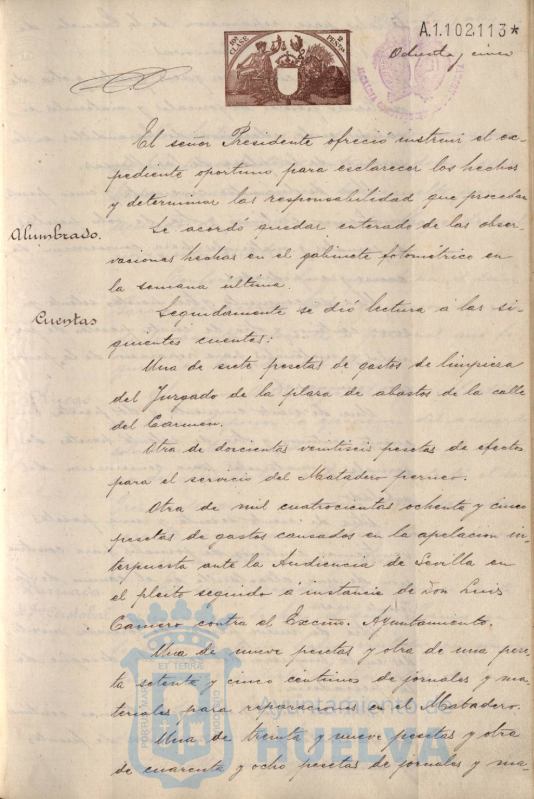 A.1.102.113*
10ª CLASE
2 PESETAS
Ochenta y cinco
El señor Presidente ofreció instruir el ex-
pediente oportuno para esclarecer los hechos
y determinar las responsabilidad que procedan
Alumbrado.
Se acordó quedar enterado de las obser-
vaciones hechas en el gabinete fotométrico en
la semana última.
Cuentas
Seguidamente se dió lectura á las si-
guientes cuentas:
Una de siete pesetas de gastos de limpieza
del Juzgado de la plaza de abastos de la calle
del Carmen.
Otra de doscientas veintiseis pesetas de efectos
para el servicio del Matadero
Otra de mil cuatrocientas ochenta y cinco
pesetas de gastos causados en la apelacion in-
terpuesta ante la Audiencia de Sevilla en
el pleito seguido á instancia de Don Luis
contra el Excmo. Ayuntamiento.
Una de nueve pesetas y otra de una pese-
ta setenta y cinco centimos de jornales y ma-
teriales para reparaciones en el Matadero.
Una de treinta y nueve pesetas y otra
de cuarenta y ocho pesetas de jornales y ma-
PORTUS MARIS ET TERRAE CUSTODIA
Ayuntamiento de
HUELVA